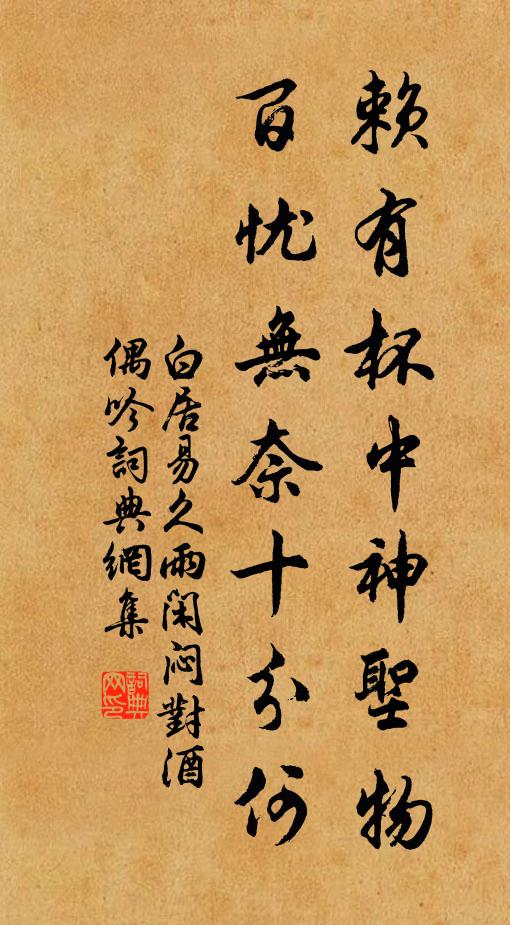 賴有杯中神聖物
百忧無奈十分何
白居易久雨閑悶對酒
偶吟詞典網集
詞典
网印